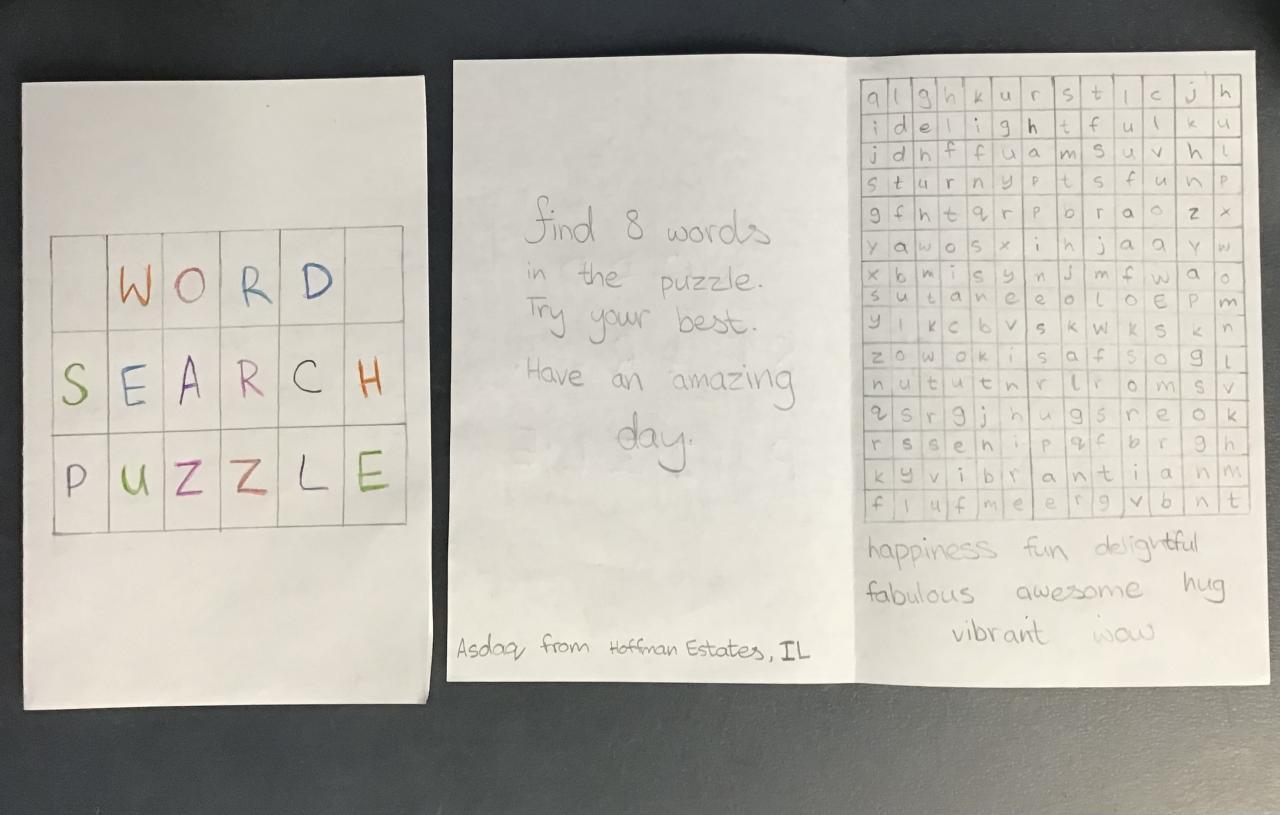 WORD
SEARCH
PUZZLE
find 8 words
in the puzzle.
Try your best.
Have an amazing
day.
Asdaq from Hoffman Estates, IL
a l g h k u r s t l c j h
i d e l i g h t f u l k u
j d h f f u a m s u v h l
s t u r n y p t s f u n p
g f h t q r p b r a o z x
y a w o s x i h j a a y w
x b m i s y n j m f w a o
s u t a n e e o l o E p m
y l k c b v s k w k s k n
z o w o k i s a f s o g l
n u t u t n r l r o m s v
q s r g j h u g s r e o k
r s s e n i p q f b r g h
k y v i b r a n t i a n m
f l u f m e e r g v b n t
happiness fun delightful
fabulous awesome hug
vibrant wow